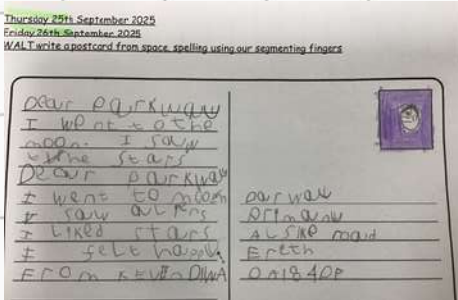 Thursday 25th September 2025
Friday 26th September 2025
WALT write a postcard from space, spelling using our segmenting fingers
Dear Parkway
I went to the
moon. I saw
the stars
Dear parkway
I went to moon
I saw
I Liked stars
I felt happy
From Kevin
par way
primany
ALSIKE road
Ereth